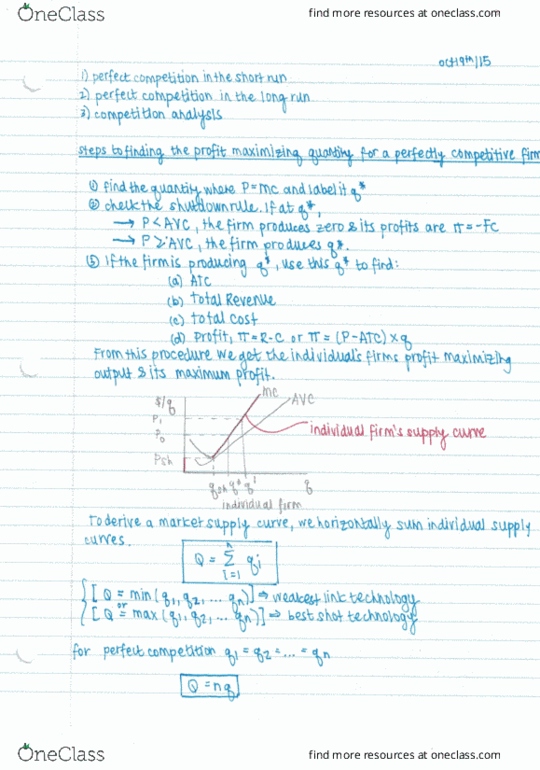 OneClass
find more resources at oneclass.com
oct 19th/15
1) perfect competition in the short run
2) perfect competition in the long run
3) competition analysis
steps to finding the profit maximizing quantity for a perfectly competitive firm
① find the quantity where P=MC and label it q*
② check the shutdown rule. If at q*,
→ P < AVC, the firm produces zero & its profits are π = -FC
→ P ≥ AVC, the firm produces q*.
③ If the firm is producing q*, use this q* to find:
(a) ATC
(b) Total Revenue
(c) Total Cost
(d) Profit, π = R-C or π = (P-ATC) × q
From this procedure we get the individual's firms profit maximizing
output & its maximum profit.
$/q
MC
AVC
P₁
P₀
Psh
individual firm's supply curve
qsh q⁰ q¹
q
individual firm
To derive a market supply curve, we horizontally sum individual supply
curves.
Q = Σ qi
n
i=1
[Q = min (q₁, q₂, ... qn)] ⇒ weakest link technology
or
[Q = max (q₁, q₂, ... qn)] ⇒ best shot technology
for perfect competition q₁ = q₂ = ... = qn
Q = nq
OneClass
find more resources at oneclass.com